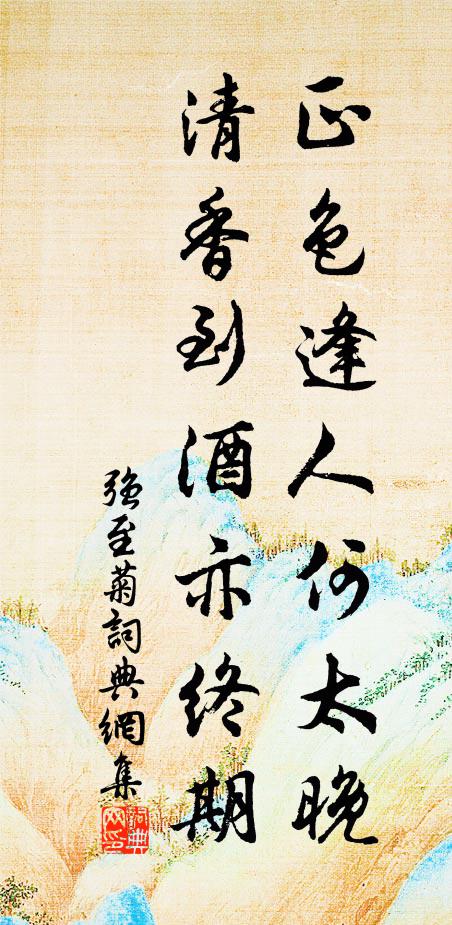 正色逢人何太晚
清香到酒亦终期
强至菊詞典網集
詞典
网印